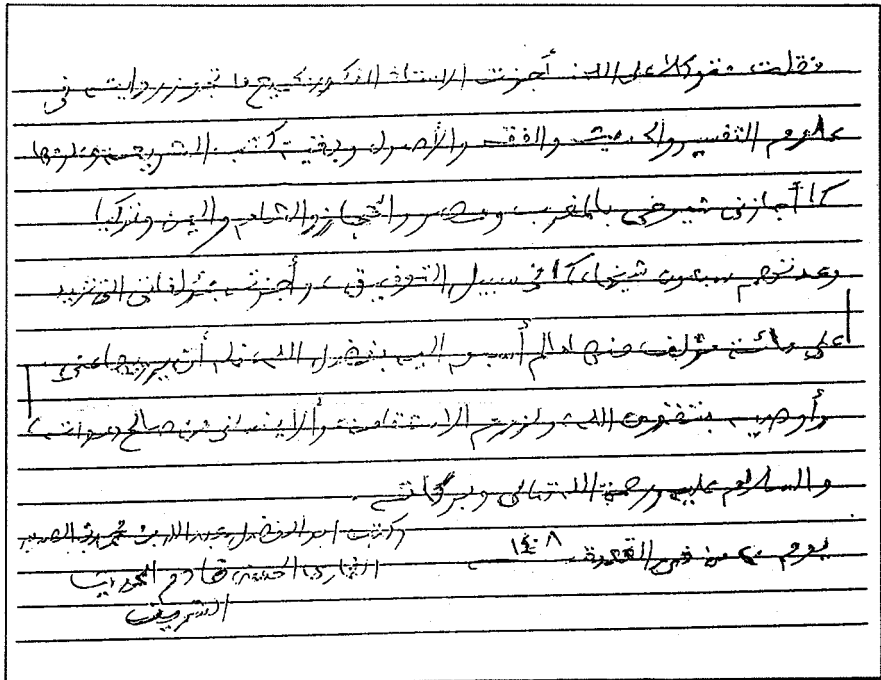 فقلت متوكلا على الله: أجزت الأستاذ المذكور بجميع ما تجوز روايته في
علوم التفسير والحديث والفقه والأصول وبقية كتب الشريعة
كما أجازني شيوخي بالمغرب ومصر والحجاز والشام واليمن وتركيا
وعدتهم سبعون شيخا، كما في سبيل التوفيق، وأجزته بمؤلفاتي التي تزيد
على مائة مؤلف، منها ما لم أسبق إليه بفضل الله، فله أن يرويها عني
وأوصيه بتقوى الله ولزوم الاستقامة وألا ينساني من صالح دعواته،
والسلام عليه ورحمة الله تعالى وبركاته
يوم من ذي القعدة ١٤٠٨
وكتب أبو الفضل عبد الله بن محمد بن الصديق
الغماري الحسني خادم الحديث
الشريف